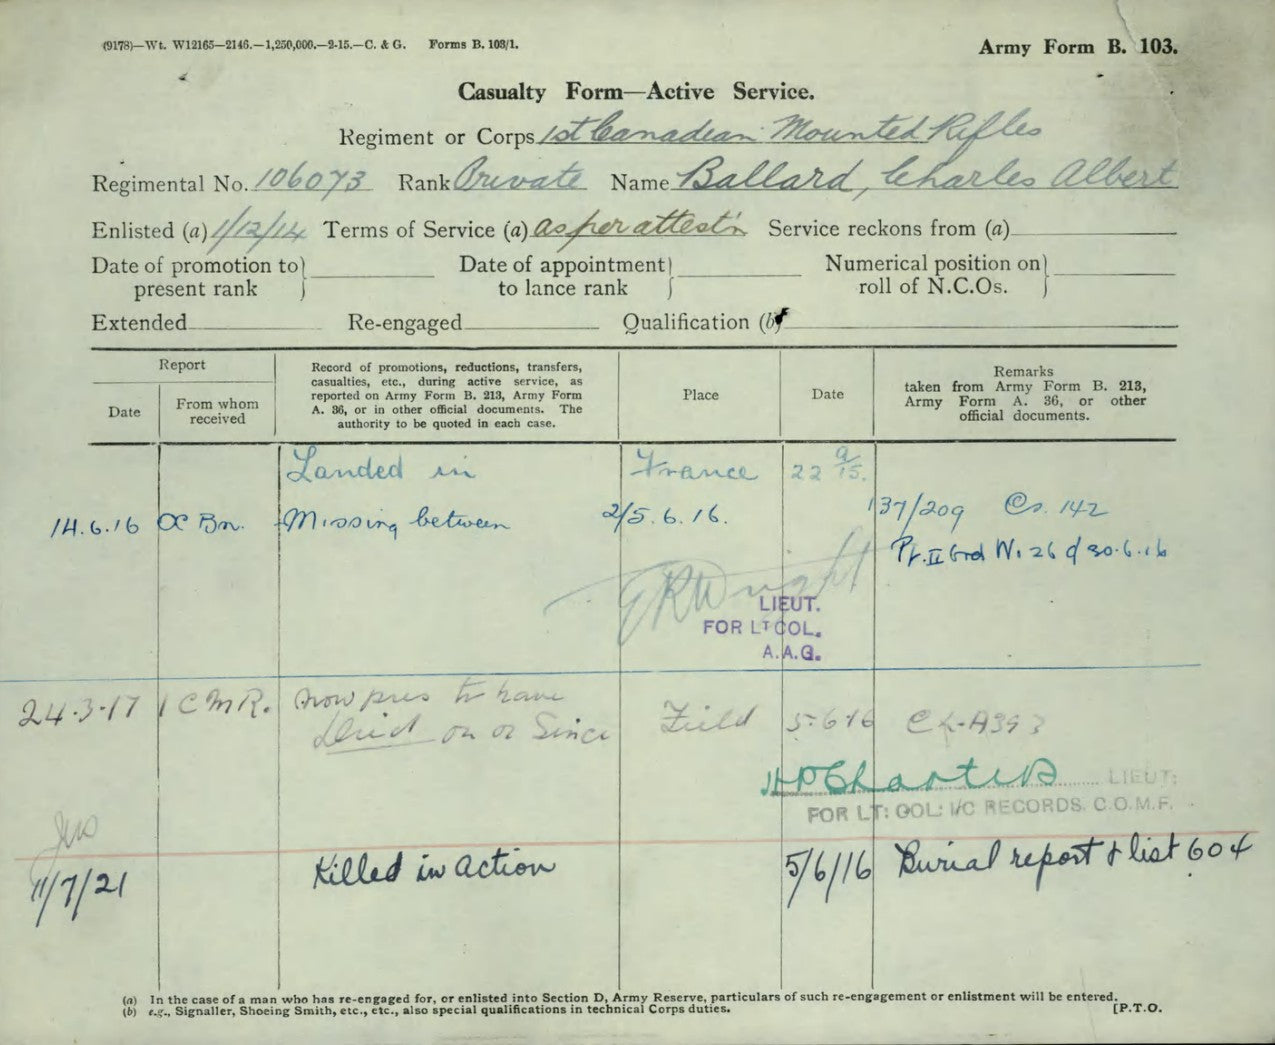 (9178)—Wt. W12165—2146.—1,250,000.—2-15.—C. & G. Forms B. 103/1.
Army Form B. 103.
Casualty Form—Active Service.
Regiment or Corps 1st Canadian Mounted Rifles
Regimental No. 106073 Rank Private Name Ballard, Charles Albert
Enlisted (a) 1/12/14 Terms of Service (a) as per attest'n Service reckons from (a)
Date of promotion to present rank
Date of appointment to lance rank
Numerical position on roll of N.C.Os.
Extended Re-engaged Qualification (b)
Report
Date
From whom received
Record of promotions, reductions, transfers,
casualties, etc., during active service, as
reported on Army Form B. 213, Army Form
A. 36, or in other official documents. The
authority to be quoted in each case.
Place
Date
Remarks
taken from Army Form B. 213,
Army Form A. 36, or other
official documents.
Landed in France 22 9/15.
14.6.16 OC Bn. Missing between 2/5.6.16. 137/209 Cs. 142
Pt. II Ord No 26 d/30.6.16
LIEUT.
FOR LT COL.
A.A.G.
24-3-17 1 C M R. Now pres to have Field 5-6-16 CL-A393
Died on or Since
LIEUT:
FOR LT: COL: I/C RECORDS. C.O.M.F.
11/7/21 Killed in Action 5/6/16 Burial report & list 604
(a) In the case of a man who has re-engaged for, or enlisted into Section D, Army Reserve, particulars of such re-engagement or enlistment will be entered.
(b) e.g., Signaller, Shoeing Smith, etc., etc., also special qualifications in technical Corps duties.
[P.T.O.